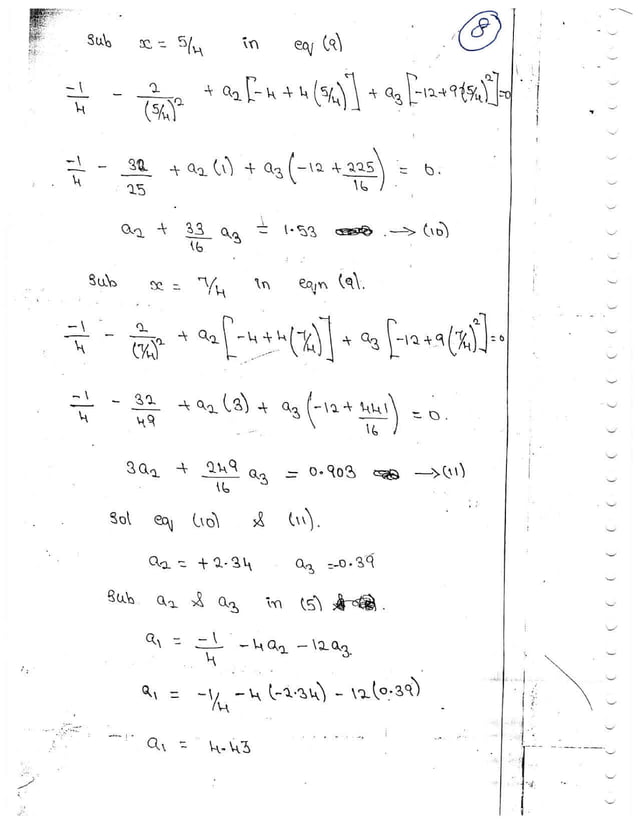 8
Sub x = 5/4 in eq (9)
-1/4 - 2/(5/4)² + a₂[-4 + 4(5/4)] + a₃[-12+9(5/4)²]=0
-1/4 - 32/25 + a₂(1) + a₃(-12 + 225/16) = 0.
a₂ + 33/16 a₃ = 1.53 → (10)
Sub x = 7/4 in eqn (9).
-1/4 - 2/(7/4)² + a₂[-4+4(7/4)] + a₃[-12+9(7/4)²]=0
-1/4 - 32/49 + a₂(3) + a₃(-12 + 441/16) = 0.
3a₂ + 249/16 a₃ = 0.903 → (11)
Sol eq (10) & (11).
a₂ = +2.34 a₃ =-0.39
Sub a₂ & a₃ in (5) .
a₁ = -1/4 - 4a₂ - 12a₃
a₁ = -1/4 - 4(-2.34) - 12(0.39)
a₁ = 4.43